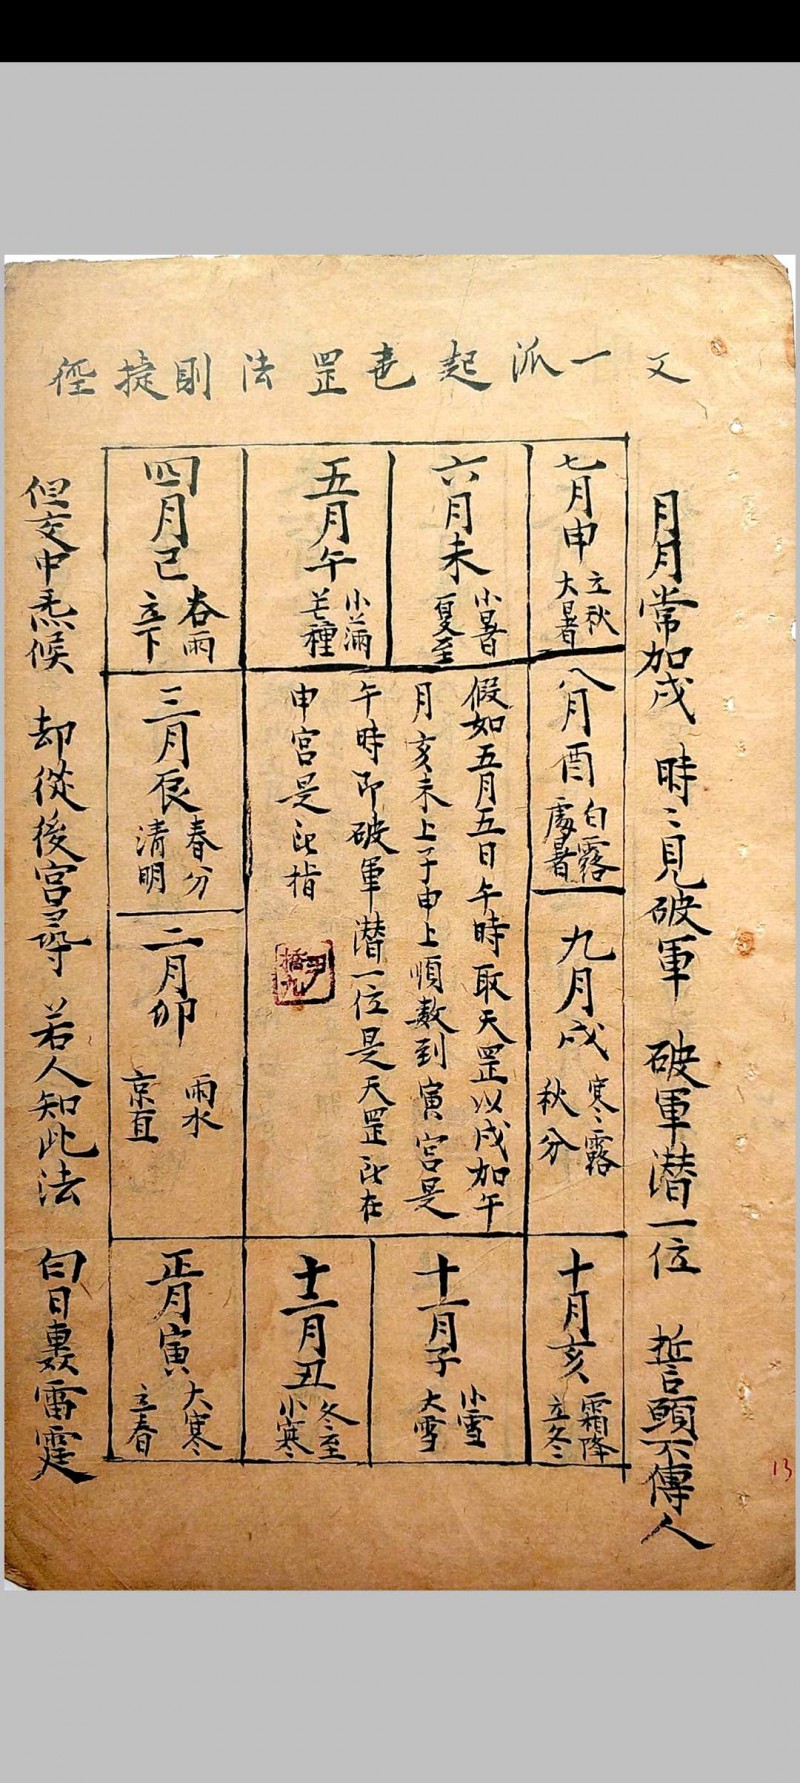 又一派起䒶罡法則捷徑
月月常加戌　時〻見破軍　破軍潛一位　誓願不傳人
七月申
立秋
大暑
六月未
小暑
夏至
五月午
小滿
芒種
四月巳
谷雨
立下
八月酉
白露
處暑
九月戌
寒露
秋分
假如五月五日午時取天罡以戌加午
月亥未上子申上順數到寅宮是
午時即破軍潛一位是天罡訣在
申宮是訣指
三月辰
春分
清明
二月卯
雨水
京直
十月亥
霜降
立冬
十一月子
小雪
大雪
十二月丑
冬至
小寒
正月寅
大寒
立春
但交中炁候　却從後宮尋　若人知此法　白日轟雷霆
13